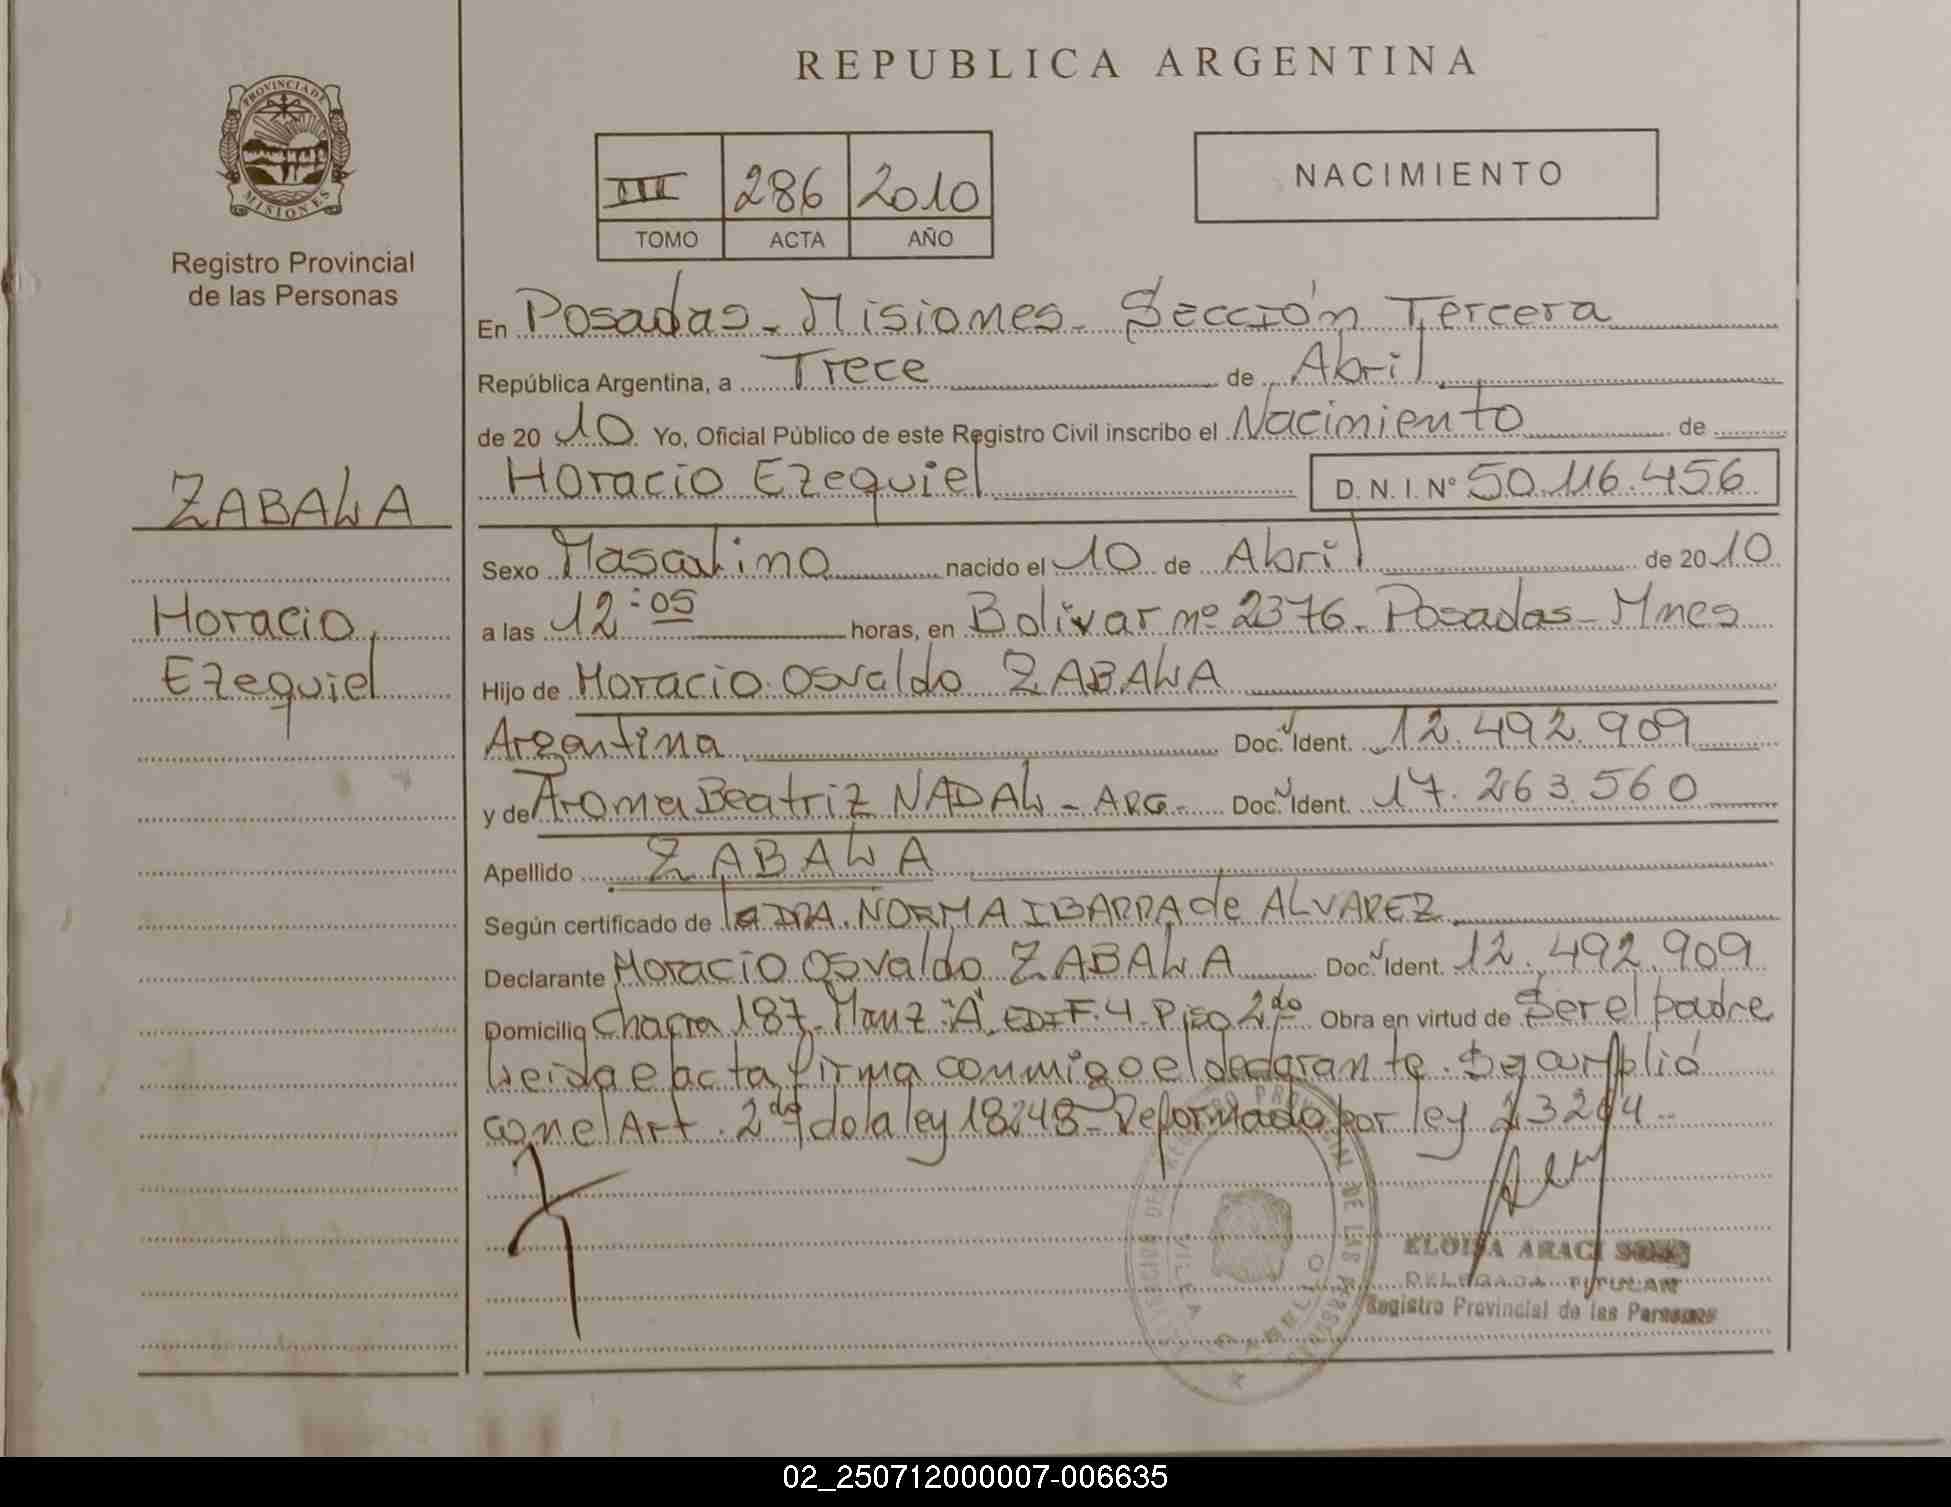 REPUBLICA ARGENTINA
PROVINCIA DE
MISIONES
Registro Provincial
de las Personas
III 286 2010
TOMO ACTA AÑO
NACIMIENTO
En Posadas - Misiones - Sección Tercera
República Argentina, a Trece de Abril
de 20 10 Yo, Oficial Público de este Registro Civil inscribo el Nacimiento de
Horacio Ezequiel D.N.I. Nº 50.116.456
ZABALA
Horacio
Ezequiel
Sexo Masculino nacido el 10 de Abril de 20 10
a las 12:05 horas, en Bolivar nº 2376 - Posadas - Mnes
Hijo de Horacio Osvaldo ZABALA
Argentina Doc. Ident. 12.492.909
y de Aroma Beatriz NADAL - ARG - Doc. Ident. 17.263.560
Apellido ZABALA
Según certificado de la DRA. NORMA IBARRA de ALVAREZ
Declarante Horacio Osvaldo ZABALA Doc. Ident. 12.492.909
Domicilio Chacra 187 - Manz "A" EDIF. 4 - Piso 2do Obra en virtud de Ser el padre
Leida el acta firma conmigo el declarante. Se cumplió
con el Art. 2do de la ley 18248 - Reformado por ley 23264
ELOISA ARACI
DELEGADA TITULAR
Registro Provincial de las Personas
REGISTRO PROVINCIAL DE LAS PERSONAS
02_250712000007-006635